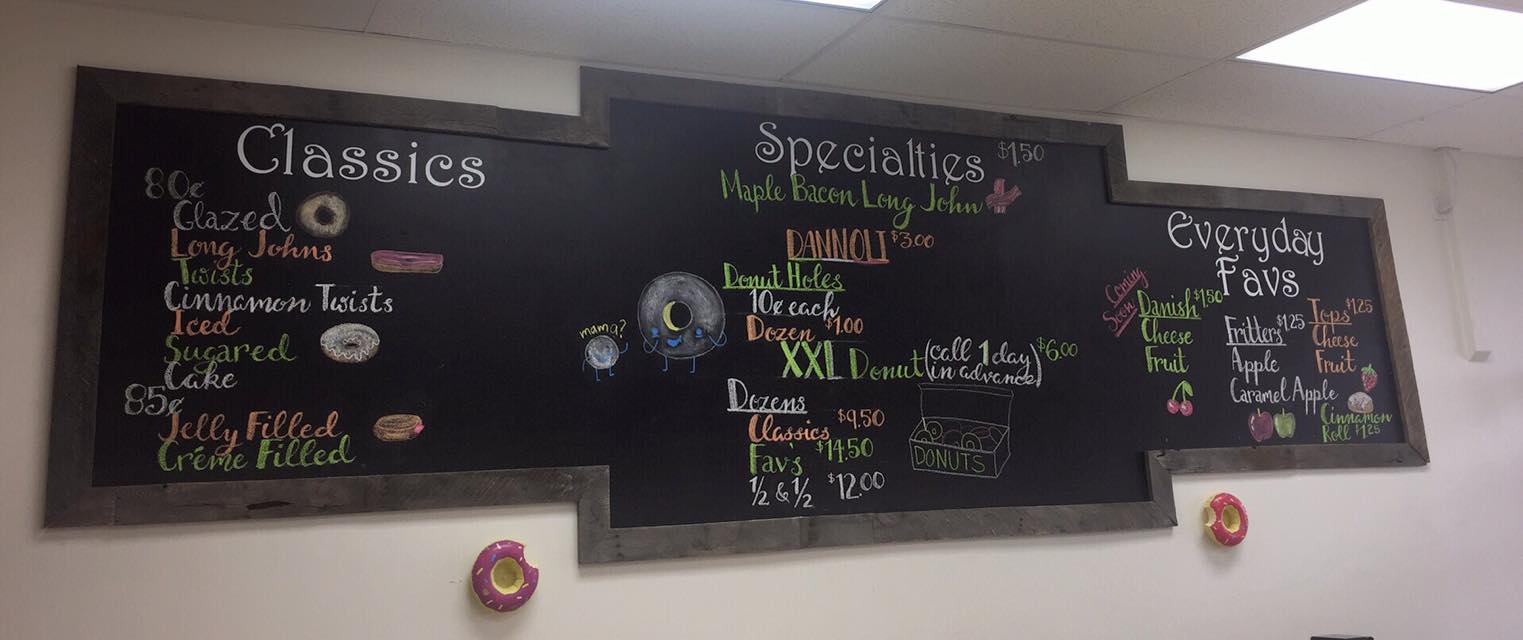 Classics
80¢
Glazed
Long Johns
Twists
Cinnamon Twists
Iced
Sugared
Cake
85¢
Jelly Filled
Créme Filled
Specialties $1.50
Maple Bacon Long John
DANNOLI $3.00
Donut Holes
10¢ each
Dozen $1.00
mama?
XXL Donut (call 1 day in advance) $6.00
Dozens
Classics $9.50
Fav's $14.50
½ & ½ $12.00
DONUTS
Everyday
Favs
Coming
Soon
Danish $1.50
Cheese
Fruit
Fritters $1.25
Apple
Caramel Apple
Tops $1.25
Cheese
Fruit
Cinnamon
Roll $1.25